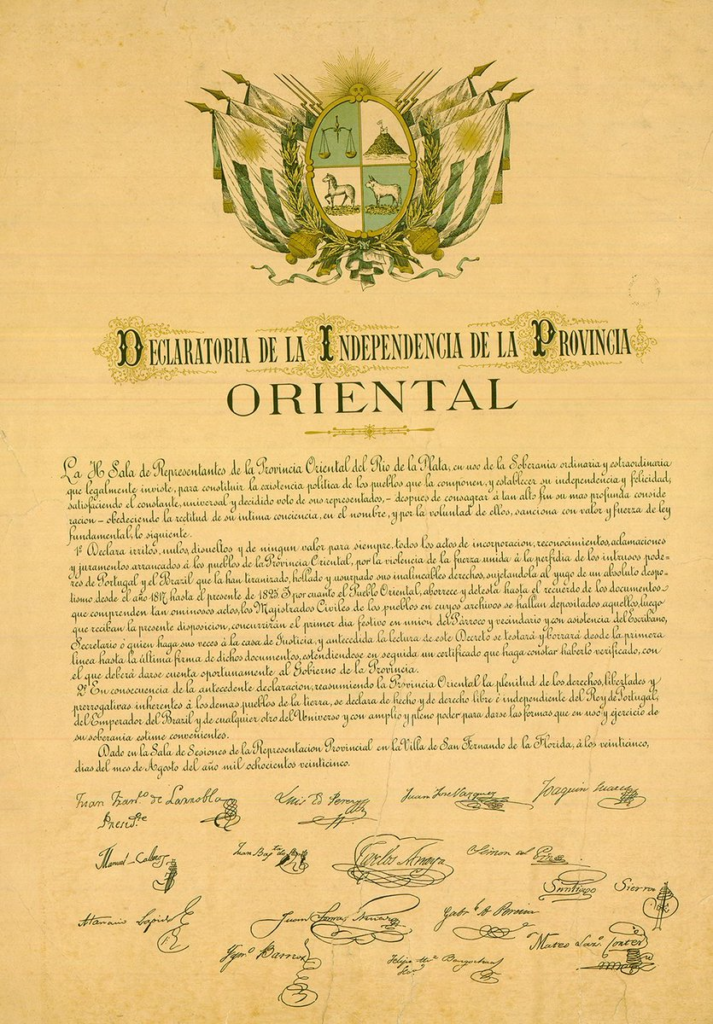 DECLARATORIA DE LA INDEPENDENCIA DE LA PROVINCIA
ORIENTAL
La H Sala de Representantes de la Provincia Oriental del Rio de la Plata, en uso de la Soberania ordinaria y estraordinaria
que legalmente inviste, para constituir la existencia politica de los pueblos que la componen, y establecer su independencia y felicidad,
satisfaciendo el constante, universal y decidido voto de sus representados,- despues de consagrar á tan alto fin su mas profunda conside
racion - obedeciendo la rectitud de su intima conciencia, en el nombre, y por la voluntad de ellos, sanciona con valor y fuerza de ley
fundamental, lo siguiente.
1º Declara irritos, nulos, disueltos y de ningun valor para siempre, todos los actos de incorporacion, reconocimientos, aclamaciones
y juramentos arrancados á los pueblos de la Provincia Oriental, por la violencia de la fuerza unida á la perfidia de los intrusos pode-
res de Portugal y el Brazil que la han tiranizado, hollado y usurpado sus inalineables derechos, sujetandola al yugo de un absoluto despo-
tismo desde el año 1817, hasta el presente de 1825. I por cuanto el Pueblo Oriental, aborrece y detesta hasta el recuerdo de los documentos
que comprenden tan ominosos actos, los Magistrados Civiles de los pueblos en cuyos archivos se hallan depositados aquellos, luego
que reciban la presente disposicion, concurrirán el primer dia festivo en union del Párroco y vecindario y con asistencia del Escribano,
Secretario ó quien haga sus veces á la casa de Justicia, y antecedida la lectura de este Decreto se testará y borrará desde la primera
linea hasta la última firma de dichos documentos, estendiendose en seguida un certificado que haga constar haberlo verificado, con
el que deberá darse cuenta oportunamente al Gobierno de la Provincia.
2º En consecuencia de la antecedente declaracion, reasumiendo la Provincia Oriental la plenitud de los derechos, libertades y
prerrogativas inherentes á los demas pueblos de la tierra, se declara de hecho y de derecho libre é independiente del Rey de Portugal,
del Emperador del Brazil y de cualquier otro del Universo y con amplio y pleno poder para darse las formas que en uso y ejercicio de
su soberania estime convenientes.
Dado en la Sala de Sesiones de la Representacion Provincial en la Villa de San Fernando de la Florida, á los veinticinco,
dias del mes de Agosto del año mil ochocientos veinticinco.
Juan Franco de Larrobla Luis Ed Perez Juan José Vazquez Joaquin Suarez
Presidte
Manuel Calleros Carlos Anaya Simon del Pino
Santiago Sierra
Atanasio Lapido Juan Tomas Gabl A Pereira
Mateo Cortes
Ygno Barrios Felipe